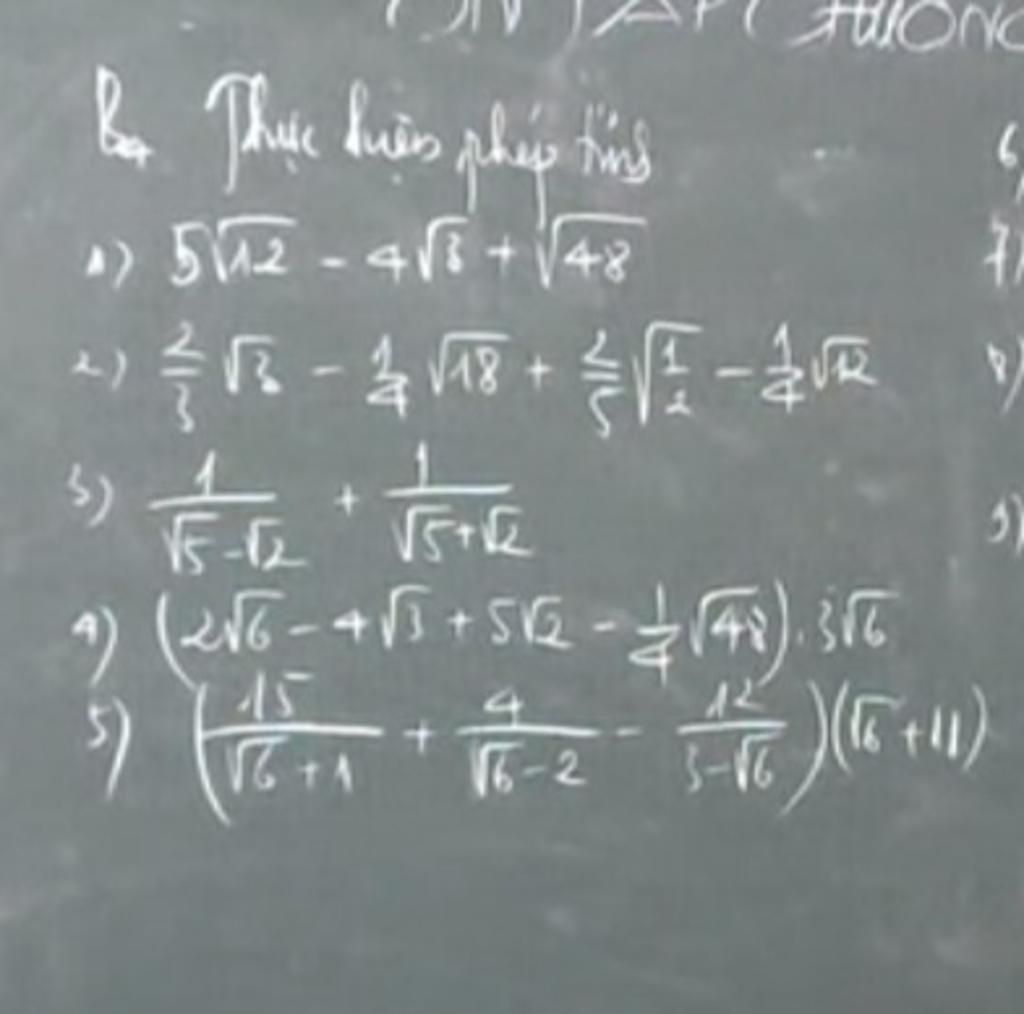 ÔN TẬP CHƯƠNG
B1. Thực hiện phép tính
1) 5√12 - 4√3 + √48
2) 2/3 √3 - 1/4 √18 + 2/5 √(1/2) - 1/4 √12
3) 1/(√5-√2) + 1/(√5+√2)
4) (2√6 - 4√3 + 5√2 - 1/4 √48) . 3√6
5) (15/(√6+1) + 4/(√6-2) - 12/(3-√6))(√6+11)
6,
7)
8)
9)